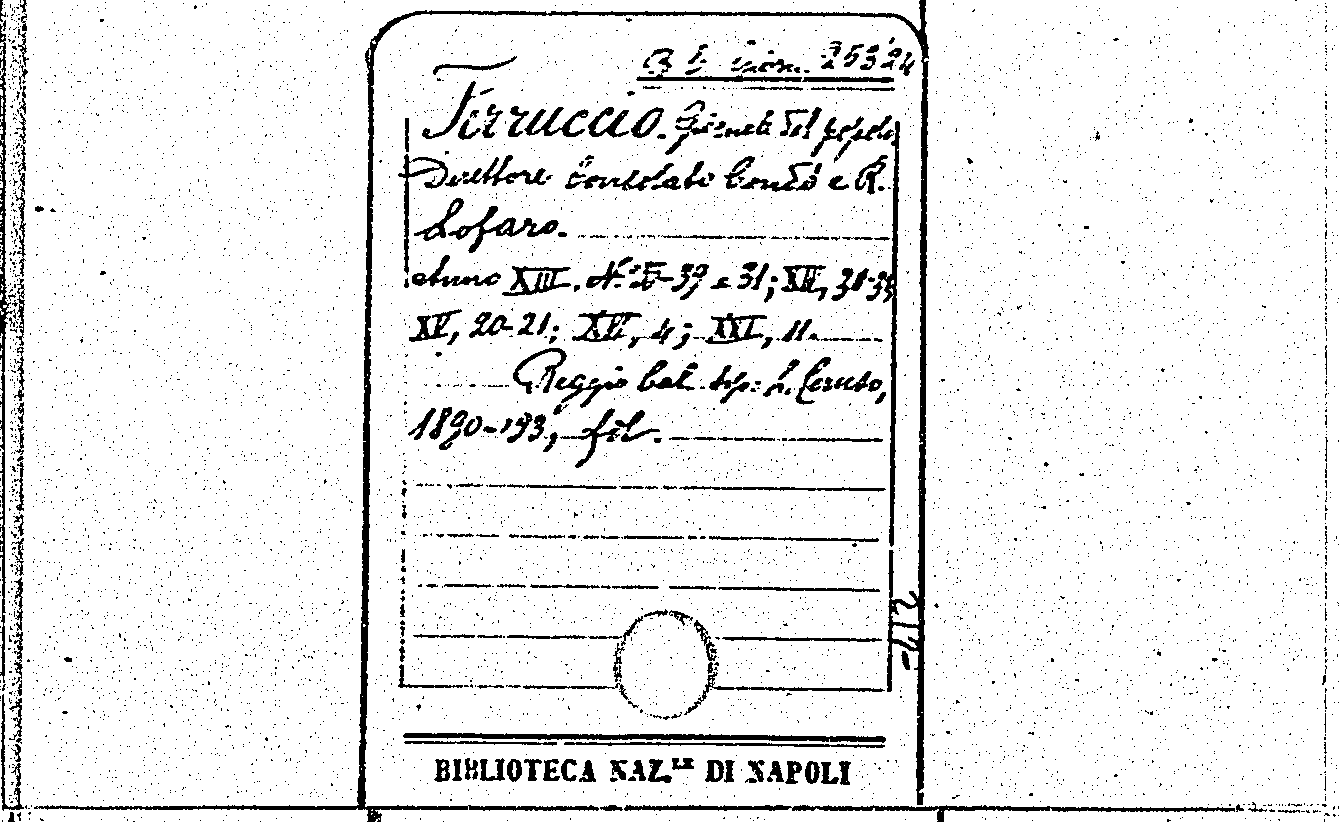 B giorn. 253 24
Ferruccio. Giornale del popolo
Direttore Consolato Condò e R.
Lofaro.
Anno XIII. N. 39 e 31; XIV,
XV, 20-21; XVI, 4; XXI, 11.
Reggio Cal. tip: L. Ceruso,
1890- fol.
BIBLIOTECA NAZ.LE DI NAPOLI